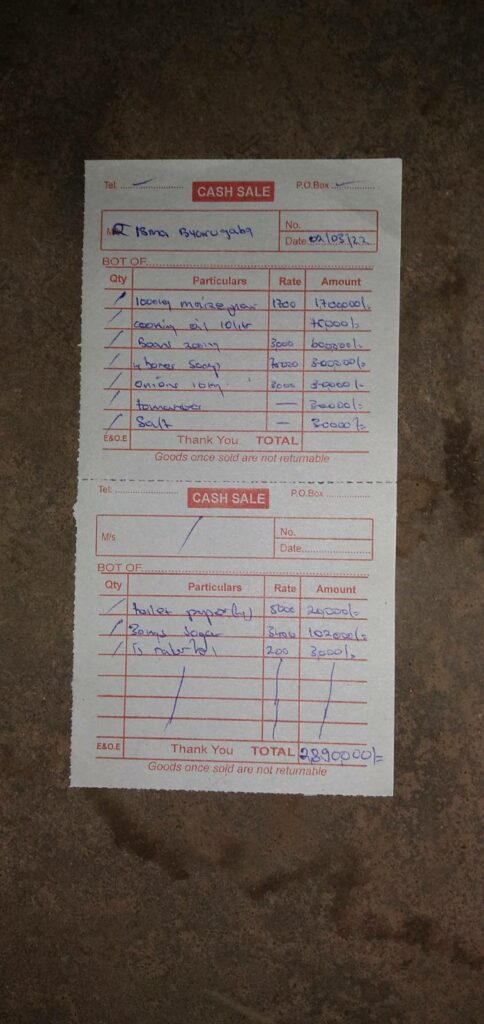 Tel: P.O.Box
CASH SALE
Byarugaba No.
Date 02/03/22
BOT OF
Qty Particulars Rate Amount
maize 1700 1,700000/=
cooking oil 10ltr
Beans 3000 600000/=
4 boxes soap 300000/=
onions 10kg 3000 30000/=
— 30000/=
Salt — 30000/=
E&O.E Thank You TOTAL
Goods once sold are not returnable
Tel: P.O.Box
CASH SALE
M/s No.
Date
BOT OF
Qty Particulars Rate Amount
toilet paper 5000 20000/=
30kgs sugar 3400 102000/=
15 200 3,000/=
E&O.E Thank You TOTAL 2890000/=
Goods once sold are not returnable